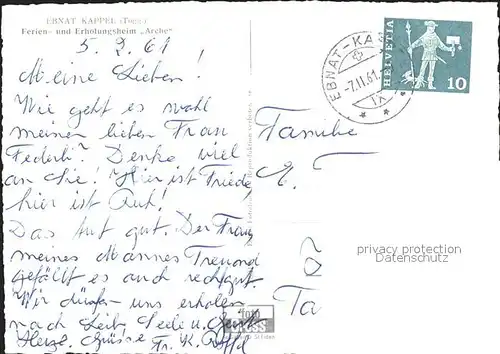 EBNAT KAPPEL (Togg.)
Ferien- und Erholungsheim „Arche"
5. 2. 61
Meine Lieben!
Wie geht es wohl
meiner lieben Frau
Federli? Denke viel
an Sie! Hier ist Friede
hier ist Ruh!
Das tut gut. Der Frau
meines Mannes Freund
gefällt es auch recht gut.
Wir dürfen uns erholen
nach Leib, Seele u. Geist
Herzl. Grüsse Fr. K.
EBNAT-KA
-7.II.61
HELVETIA
10
Familie
E. T
Ta
foto
privacy protection
Datenschutz